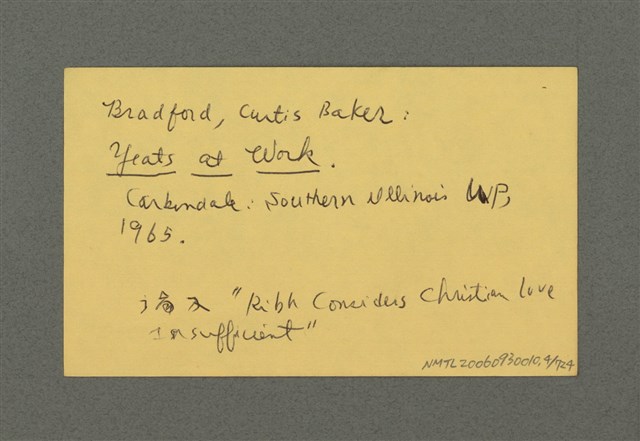 Bradford, Curtis Baker:
Yeats at Work.
Carbondale: Southern Illinois UP,
1965.
"Ribh Considers Christian love
insufficient"
NMTL20060930010.4/724